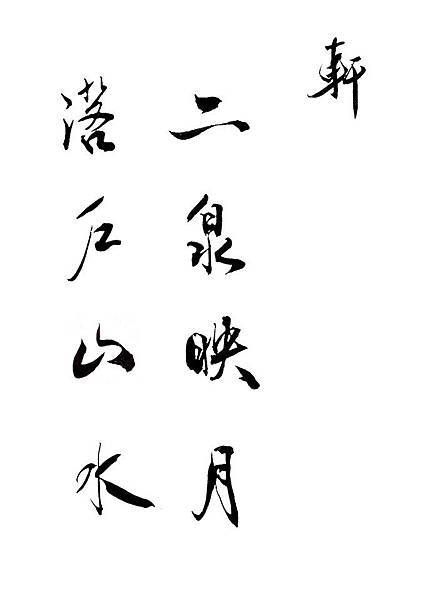 軒
二泉映月
落户山水